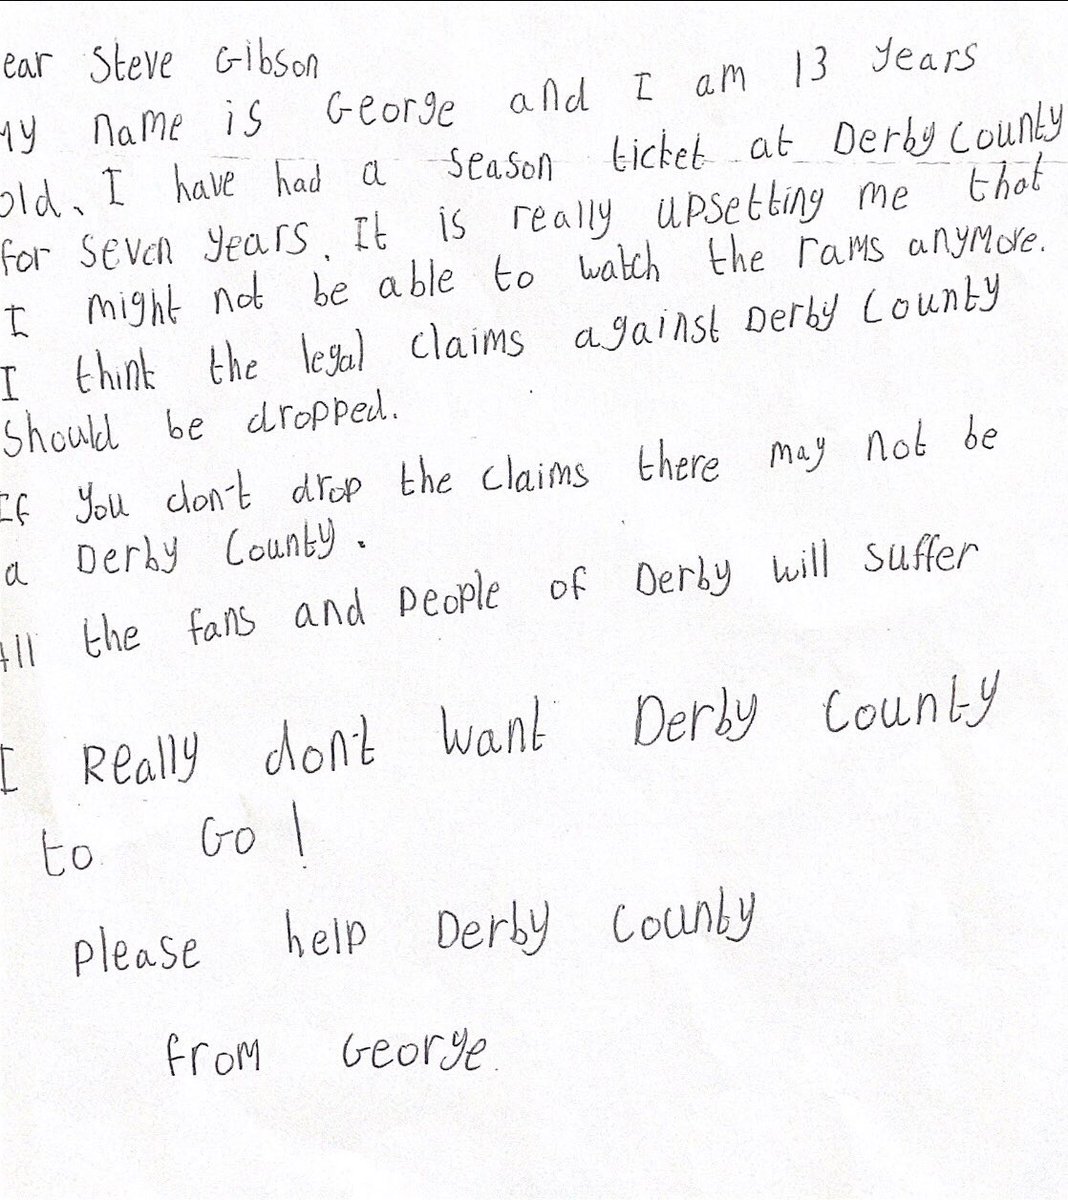 ear Steve Gibson
My name is George and I am 13 years
old. I have had a season ticket at Derby County
for seven years. It is really upsetting me that
I might not be able to watch the rams anymore.
I think the legal claims against Derby County
should be dropped.
If you don't drop the claims there may not be
a Derby County.
All the fans and people of Derby will suffer
I Really don't want Derby County
to Go!
please help Derby County
from George.